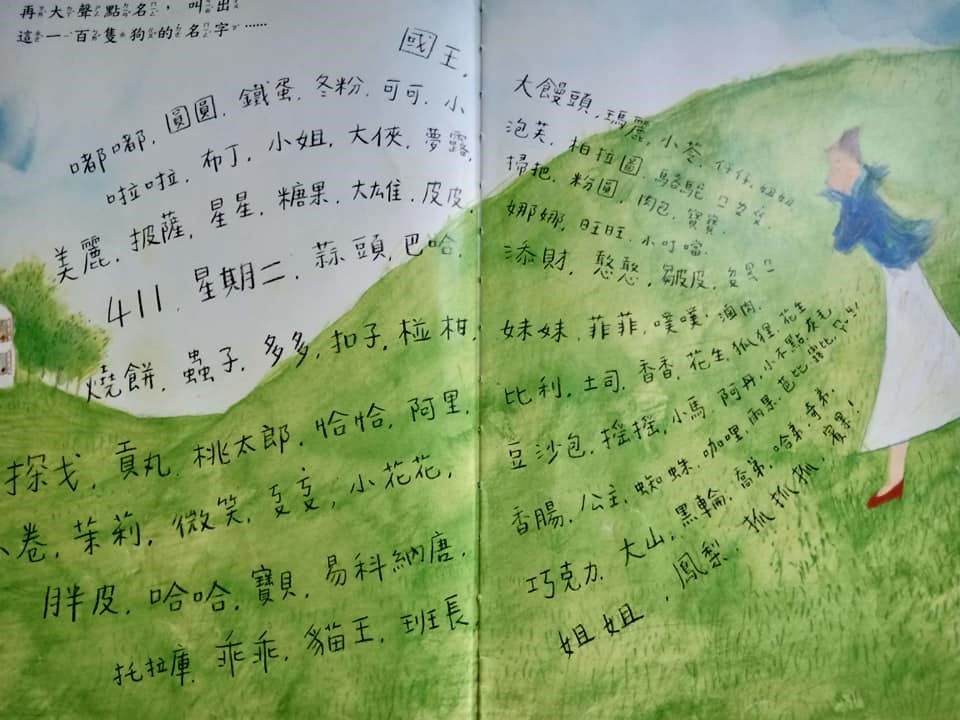 再大聲點名，叫出
這一百隻狗的名字……
國王，
嘟嘟，圓圓，鐵蛋，冬粉，可可，小
啦啦，布丁，小姐，大俠，夢露，
美麗，披薩，星星，糖果，大雄，皮皮，
411，星期二，蒜頭，巴哈，
燒餅，蟲子，多多，扣子，椪柑，
探戈，貢丸，桃太郎，恰恰，阿里，
卷，茉莉，微笑，ㄅㄅ，小花花，
胖皮，哈哈，寶貝，易科納唐，
托拉庫，乖乖，貓王，班長，
大饅頭，瑪麗，小荃，仔仔，妞妞
泡芙，柏拉圖，駱駝
掃把，粉圓，肉包，寶寶，
娜娜，旺旺，小叮噹，
添財，憨憨，皺皮，
妹妹，菲菲，噗噗，滷肉，
比利，土司，香香，花生，狐狸，花生
豆沙包，搖搖，小馬，阿丹，小不點，灰毛
香腸，公主，蜘蛛，咖哩，雨果，芭比，露比，
巧克力，大山，黑輪，喬弟，哈弟，奇弟，
姐姐，鳳梨，抓抓抓